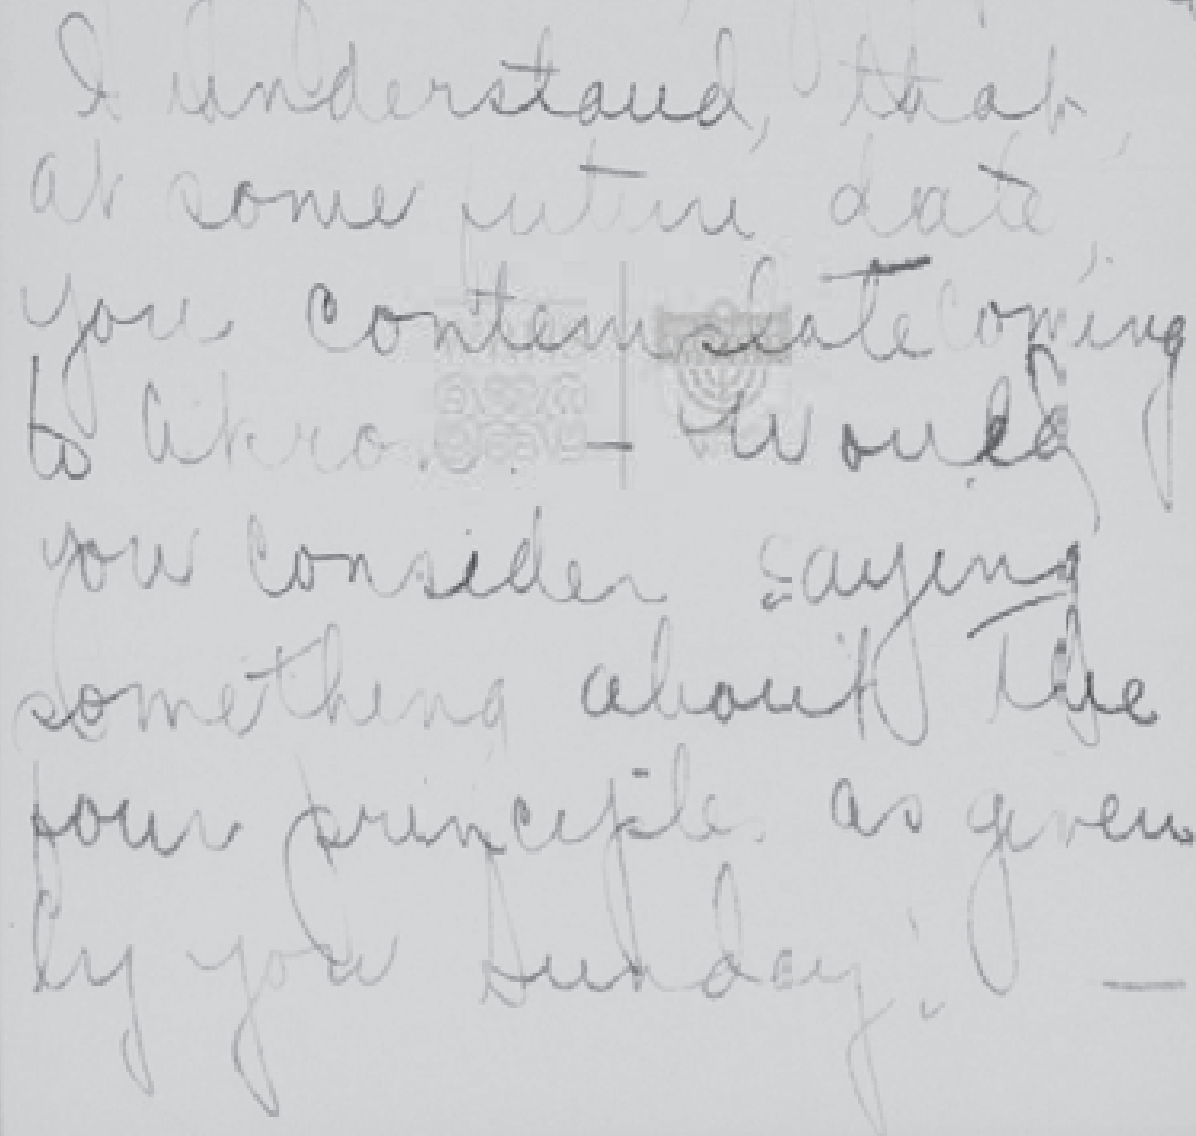 I understand, that,
at some future date,
you contemplate coming
to Akron. — Would
you consider saying
something about the
four principles as given
by you Sunday? —